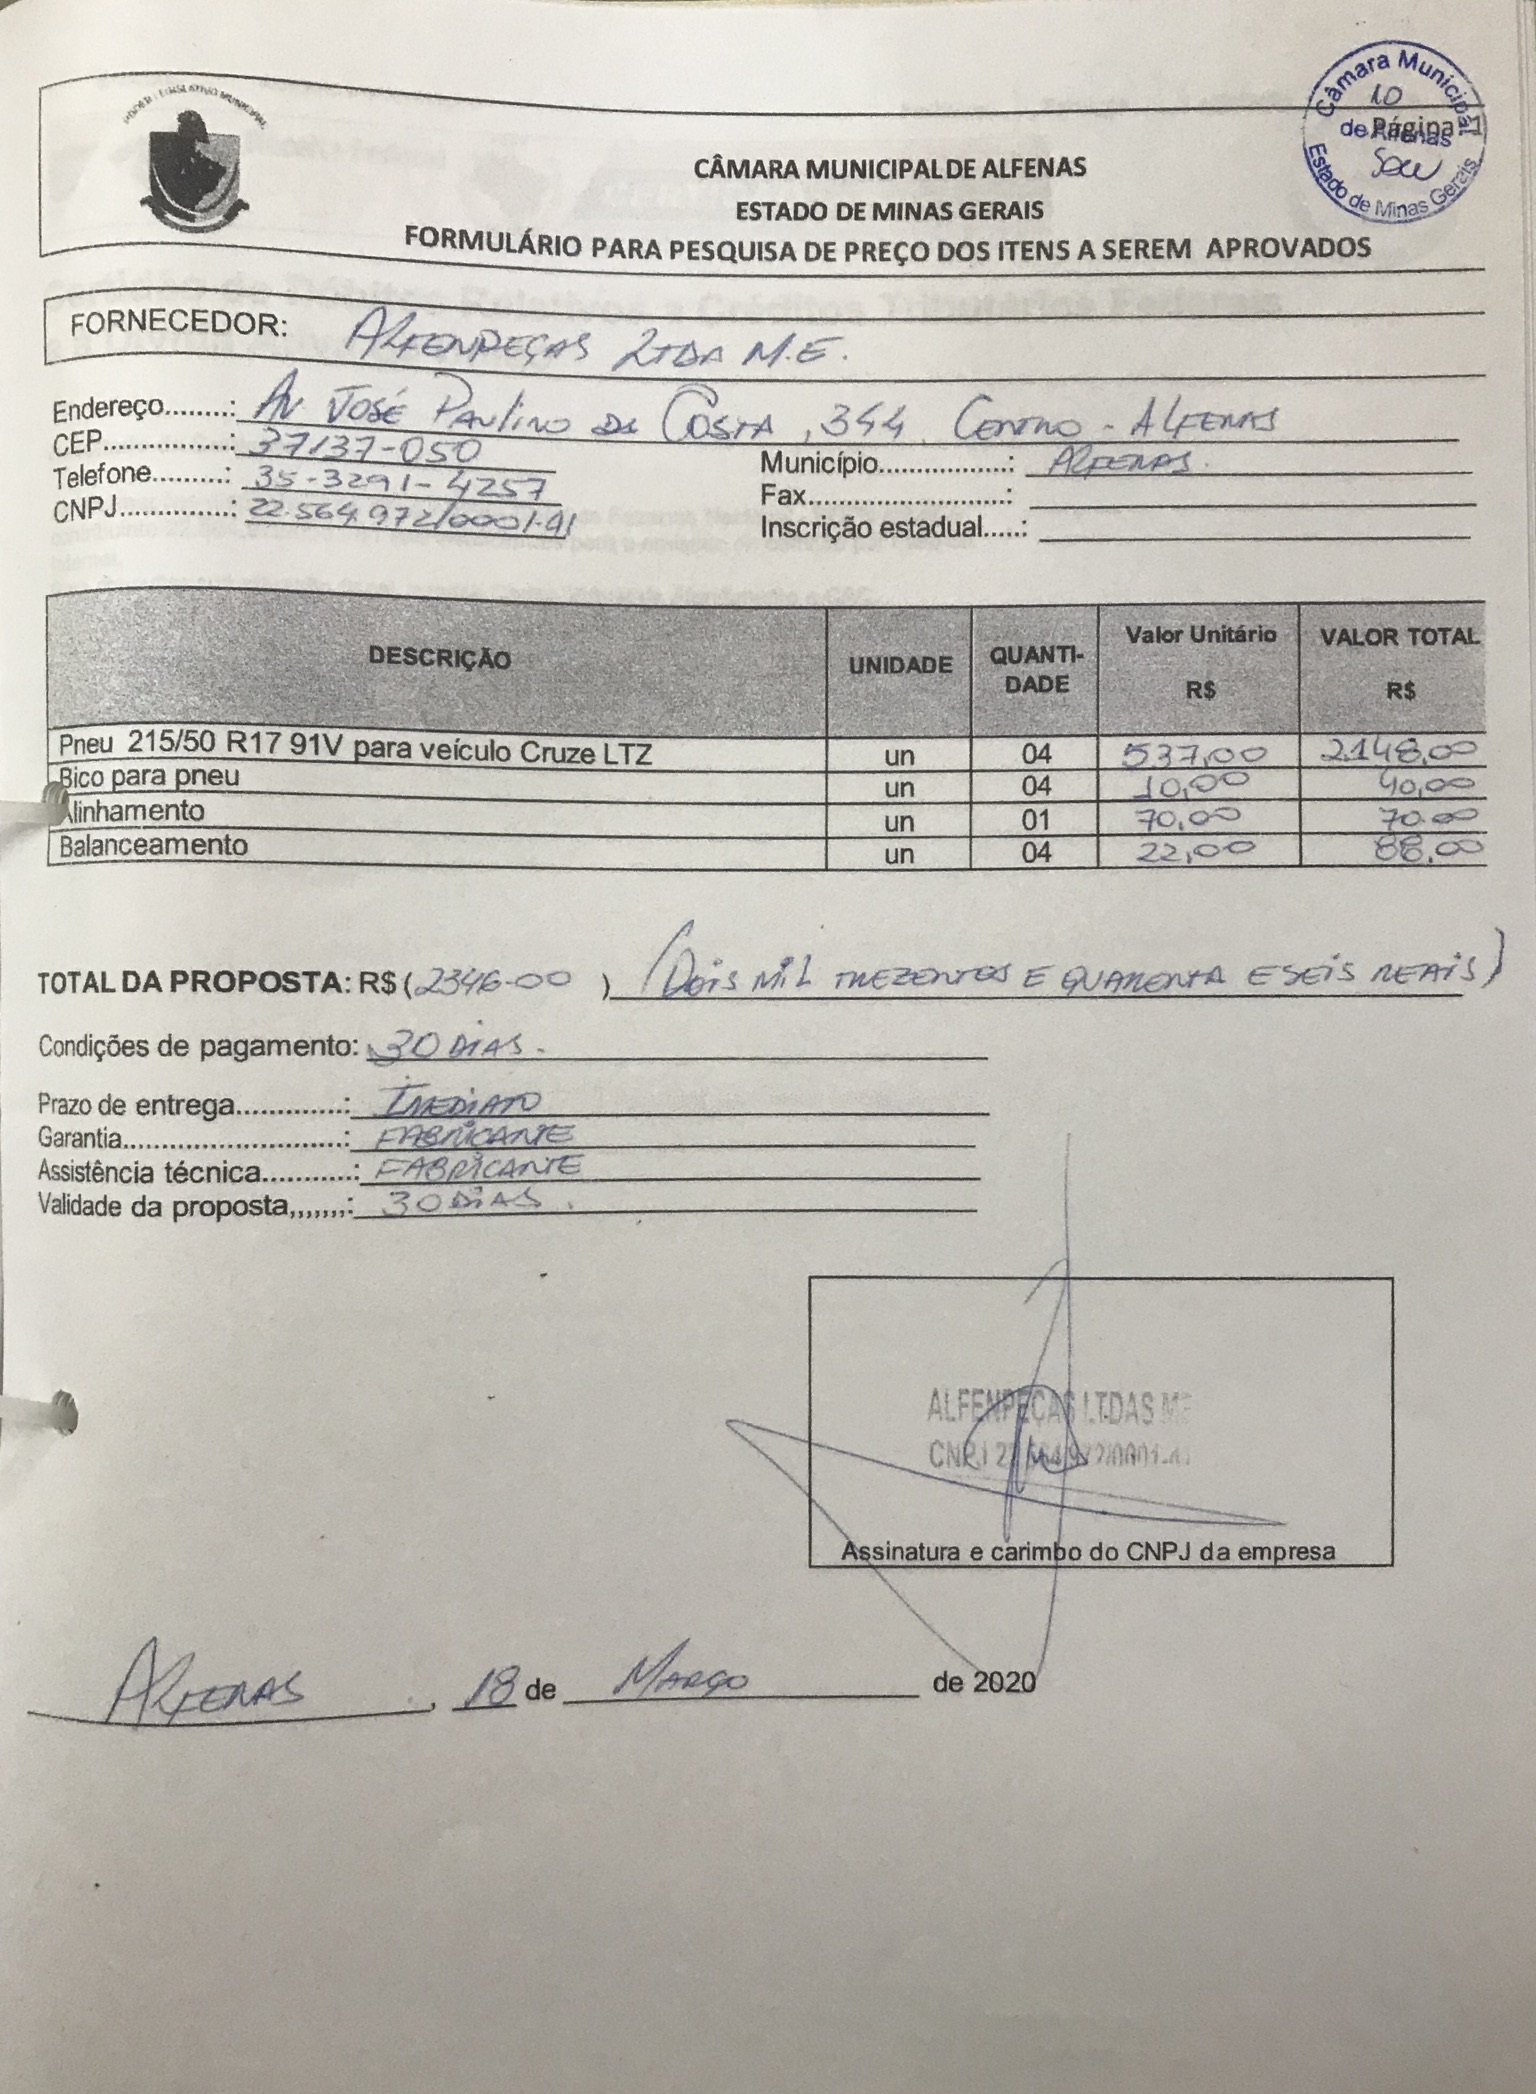 PODER LEGISLATIVO MUNICIPAL
Câmara Municipal
10
Página
de Alfenas
Estado de Minas Gerais
CÂMARA MUNICIPAL DE ALFENAS
ESTADO DE MINAS GERAIS
FORMULÁRIO PARA PESQUISA DE PREÇO DOS ITENS A SEREM APROVADOS
FORNECEDOR: ALFENPEÇAS LTDA M.E.
Endereço........: AV JOSÉ PAULINO DA COSTA, 344, CENTRO - ALFENAS
CEP...............: 37137-050
Município.................: ALFENAS.
Telefone.........: 35-3291-4257
Fax.........................:
CNPJ..............: 22.564.972/0001-41
Inscrição estadual.....:
DESCRIÇÃO UNIDADE QUANTI-DADE Valor Unitário R$ VALOR TOTAL R$
Pneu 215/50 R17 91V para veículo Cruze LTZ un 04 537,00 2148,00
Bico para pneu un 04 10,00 40,00
Alinhamento un 01 70,00 70.00
Balanceamento un 04 22,00 88,00
TOTAL DA PROPOSTA: R$ (2346-00 ) (DOIS MIL TREZENTOS E QUARENTA E SEIS REAIS)
Condições de pagamento: 30 DIAS.
Prazo de entrega.............: IMEDIATO
Garantia...........................: FABRICANTE
Assistência técnica............: FABRICANTE
Validade da proposta,,,,,,,: 30 DIAS.
ALFENPEÇAS LTDAS ME
CNPJ 22 564 972/0001-41
Assinatura e carimbo do CNPJ da empresa
ALFENAS, 18 de MARÇO de 2020